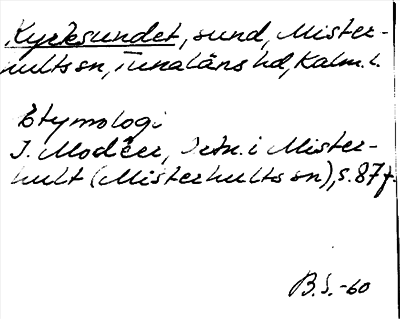 Kyrksundet, sund, Mister-
hults sn, Tunaläns hd, Kalm. l.
Etymologi
I. Modéer, Ortn. i Mister-
hult (Misterhults sn), s. 87 f.
B.S.-60